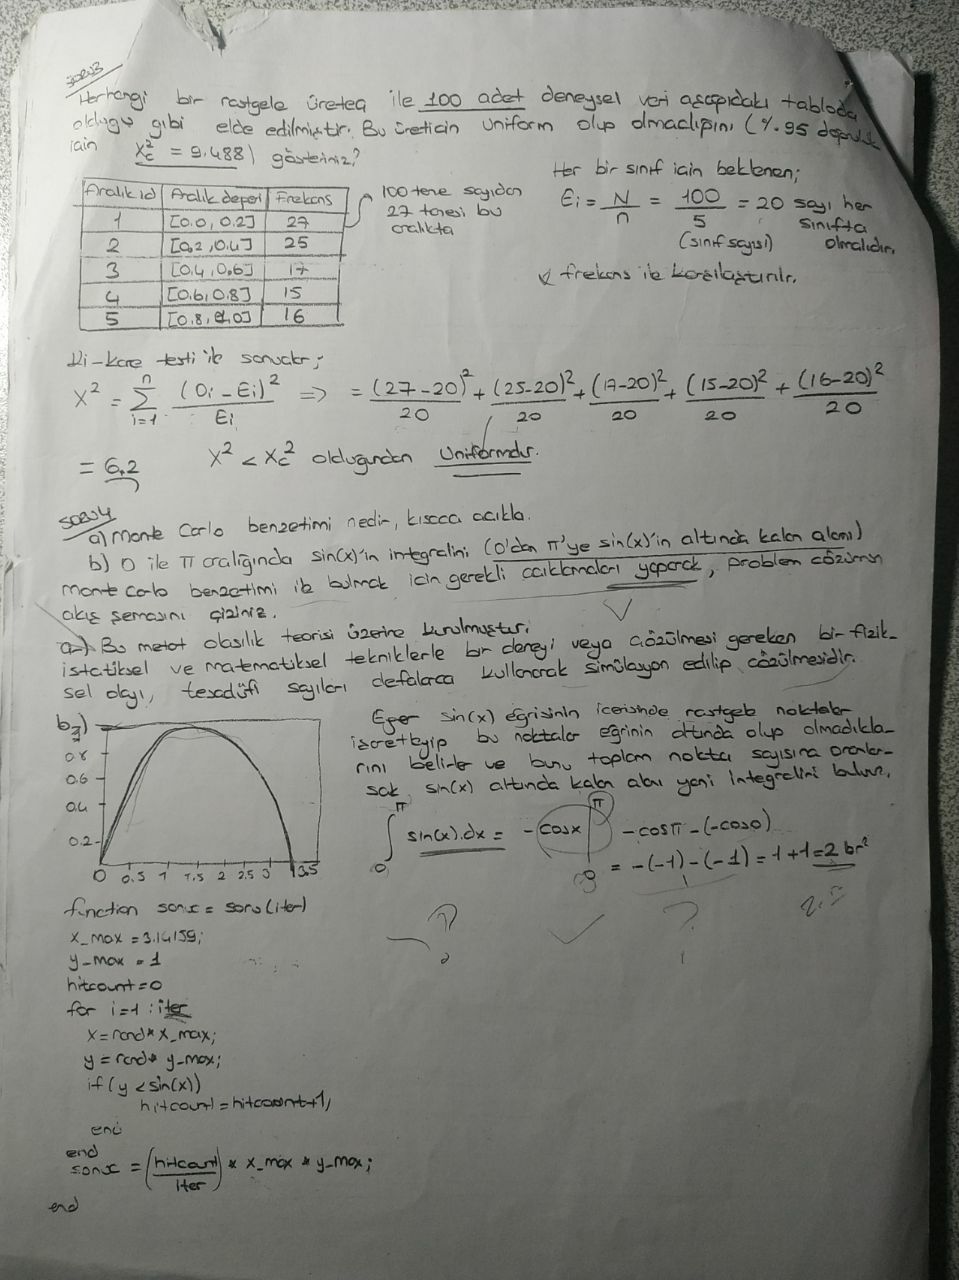 Soru3
Herhangi bir rastgele üreteç ile 100 adet deneysel veri aşağıdaki tabloda
olduğu gibi elde edilmiştir. Bu üreticin uniform olup olmadığını (%95 doğruluk
için Xc² = 9.488) gösteriniz?
Aralık id Aralık değeri Frekans
1 [0.0, 0.2] 27
2 [0.2, 0.4] 25
3 [0.4, 0.6] 17
4 [0.6, 0.8] 15
5 [0.8, 1.0] 16
100 tane sayıdan
27 tanesi bu
aralıkta
Her bir sınıf için beklenen;
Ei = N/n = 100/5 = 20 sayı her
sınıfta
(sınıf sayısı) olmalıdır.
frekans ile karşılaştırılır.
Ki-kare testi ile sonuçlar;
X² = Σ (i=1, n) (Oi - Ei)²/Ei => = (27-20)²/20 + (25-20)²/20 + (17-20)²/20 + (15-20)²/20 + (16-20)²/20
= 6,2 X² < Xc² olduğundan Uniformdur.
Soru4
a) Monte Carlo benzetimi nedir, kısaca açıkla.
b) 0 ile π aralığında sin(x)'in integralini (0'dan π'ye sin(x)'in altında kalan alanı)
Monte Carlo benzetimi ile bulmak için gerekli açıklamaları yaparak, problem çözümün
akış şemasını çiziniz.
a-) Bu metot olasılık teorisi üzerine kurulmuştur.
istatiksel ve matematiksel tekniklerle bir deneyi veya çözülmesi gereken bir fizik-
sel olayı, tesadüfi sayıları defalarca kullanarak simülasyon edilip çözülmesidir.
b-)
0.8
0.6
0.4
0.2
0 0.5 1 1,5 2 2.5 3 3.5
Eğer sin(x) eğrisinin içerisinde rastgele noktalar
işaretleyip bu noktalar eğrinin altında olup olmadıkla-
rını belirler ve bunu toplam nokta sayısına oranlar-
sak, sin(x) altında kalan alanı yani integralini buluruz.
∫ (0, π) sin(x).dx = -cosx | (0, π) -cosπ - (-cos0)
= -(-1) - (-1) = 1+1 = 2 br²
function sonuc = soru(iter)
x_max = 3.14159;
y_max = 1
hitcount = 0
for i=1 : iter
x = rand * x_max;
y = rand * y_max;
if (y < sin(x))
hitcount = hitcount+1;
end
end
sonuc = (hitcount/iter) * x_max * y_max;
end